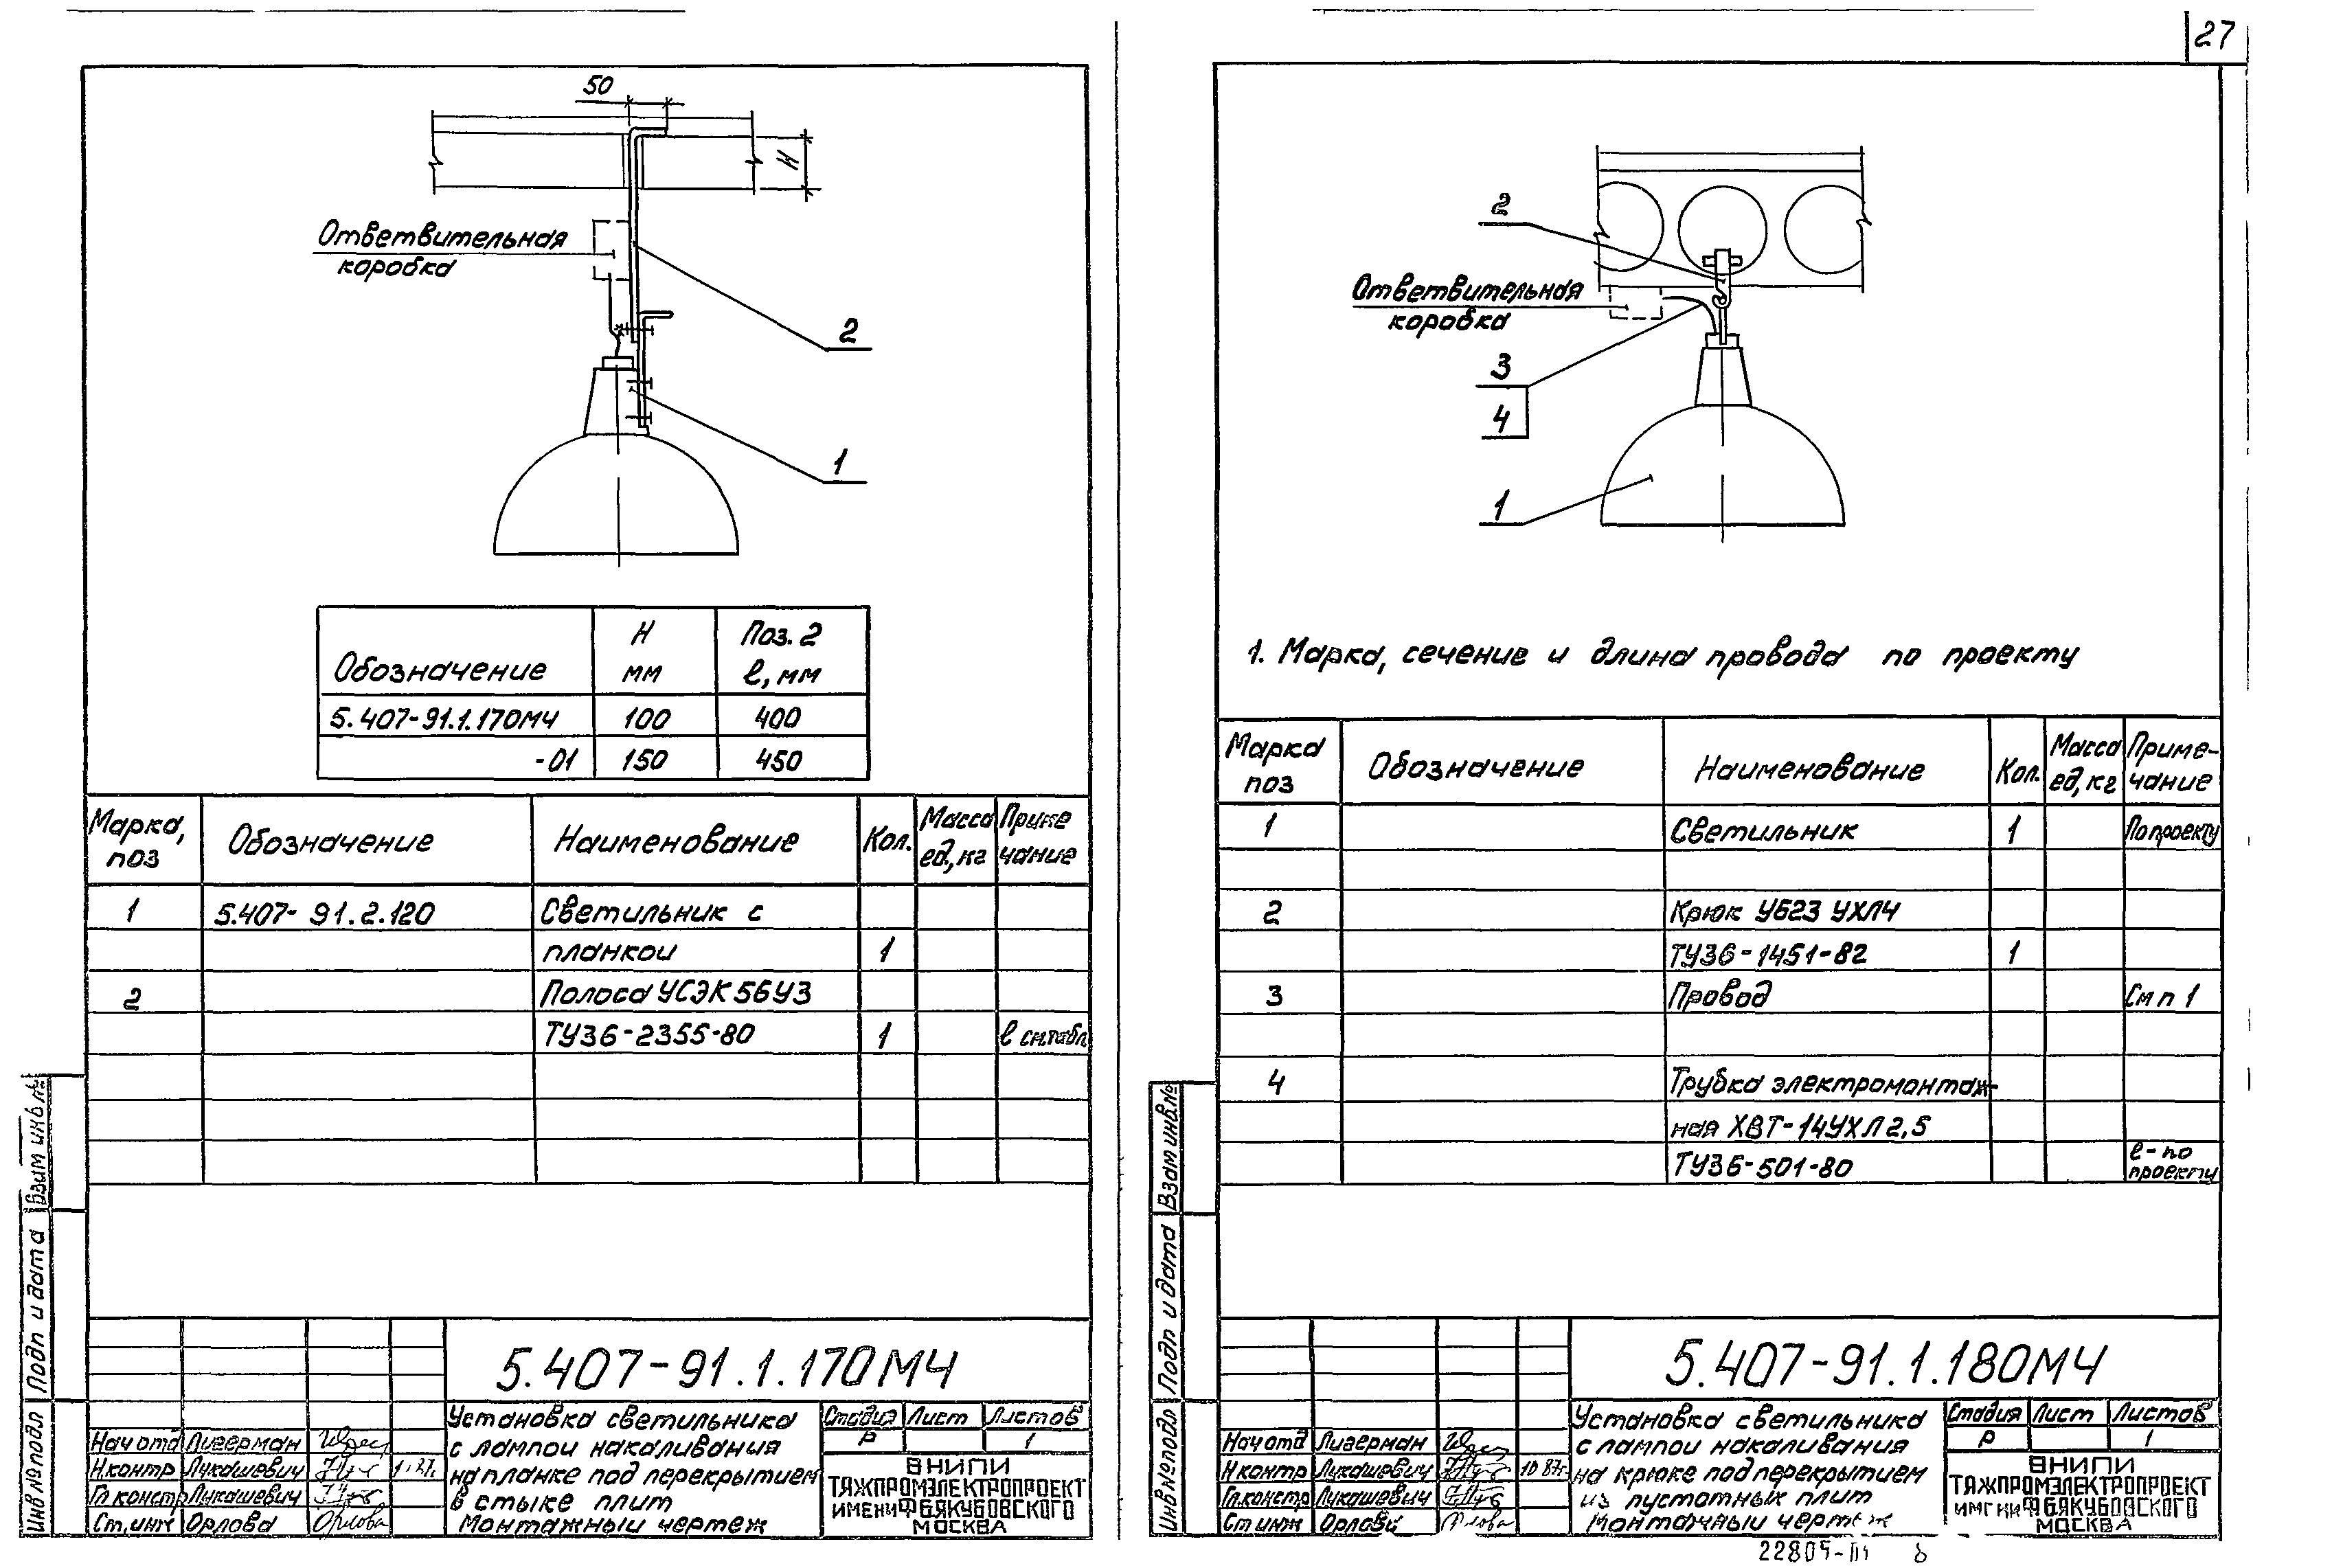 27
50
Н
Ответвительная
коробка
2
1
Обозначение Н мм Поз. 2 ℓ, мм
5.407-91.1.170МЧ 100 400
-01 150 450
Марка, поз Обозначение Наименование Кол. Масса ед, кг Приме чание
1 5.407-91.2.120 Светильник с
планкой 1
2 Полоса УСЭК 56У3
ТУ36-2355-80 1 ℓ см.табл.
Взам инв №
Подп и дата
Инв № подл
5.407-91.1.170МЧ
Установка светильника
с лампой накаливания
на планке под перекрытием
в стыке плит
Монтажный чертеж
Стадия Лист Листов
Р 1
ВНИПИ
ТЯЖПРОМЭЛЕКТРОПРОЕКТ
ИМЕНИ Ф.Б.ЯКУБОВСКОГО
МОСКВА
Нач отд Лигерман
Н контр Лукашевич
Гл констр Лукашевич
Ст. инж Орлова Орлова
2
Ответвительная
коробка
3
4
1
1. Марка, сечение и длина провода по проекту
Марка поз Обозначение Наименование Кол. Масса ед, кг Приме- чание
1 Светильник 1 По проекту
2 Крюк У623 УХЛ4
ТУ36-1451-82 1
3 Провод См п 1
4 Трубка электромонтаж-
ная ХВТ-14УХЛ2,5
ТУ36-501-80 ℓ-по проекту
Взам инв.№
Подп и дата
Инв № подл
5.407-91.1.180МЧ
Установка светильника
с лампой накаливания
на крюке под перекрытием
из пустотных плит
Монтажный чертеж
Стадия Лист Листов
Р 1
ВНИПИ
ТЯЖПРОМЭЛЕКТРОПРОЕКТ
ИМЕНИ Ф.Б.ЯКУБОВСКОГО
МОСКВА
Нач отд Лигерман
Н контр Лукашевич 10 87г.
Гл.констр Лукашевич
Ст инж Орлова